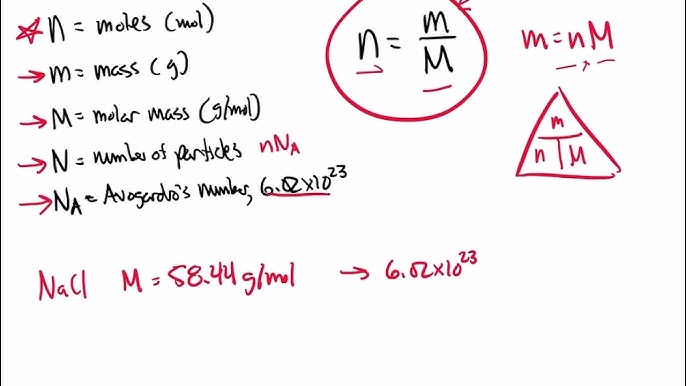 n = moles (mol)
m = mass (g)
M = molar mass (g/mol)
N = number of particles nNA
NA = Avogardro's number, 6.02×10²³
n = m/M
m = nM
m
n | M
NaCl M = 58.44 g/mol → 6.02×10²³